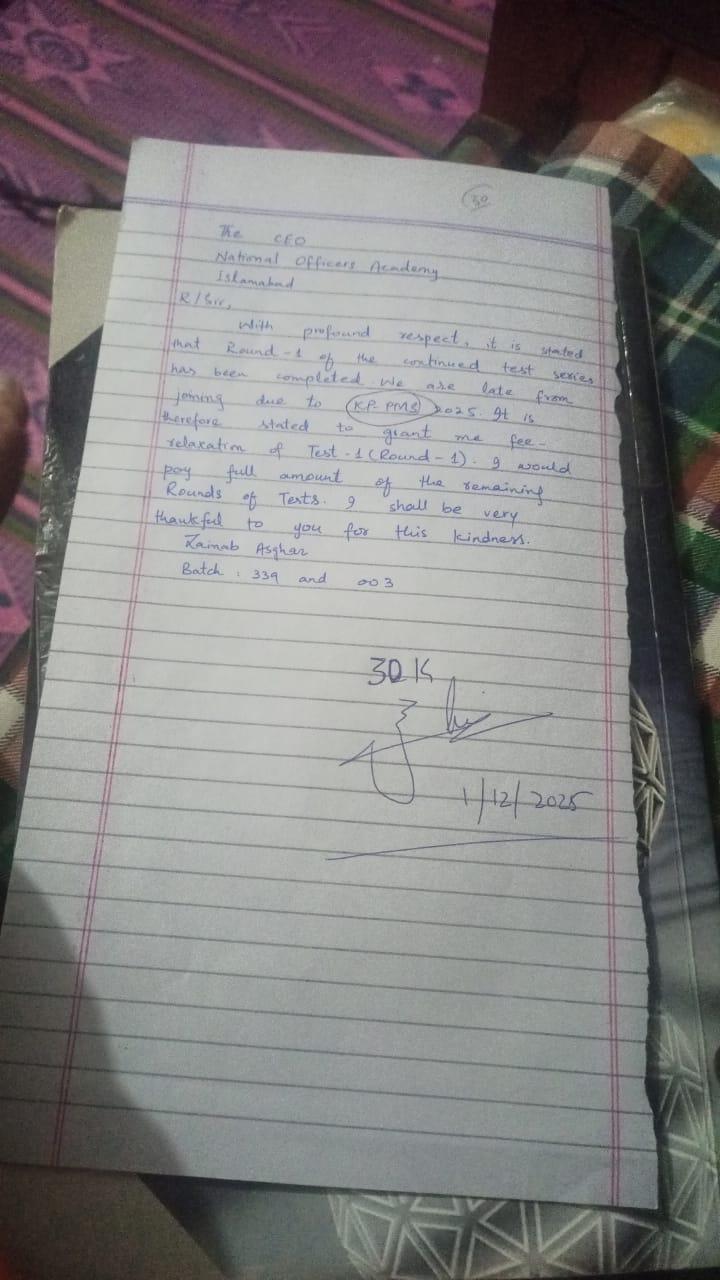 30
The CEO
National Officers Academy
Islamabad
R/Sir,
With profound respect, it is stated
that Round-1 of the continued test series
has been completed. We are late from
joining due to KP-PMS 2025. It is
therefore stated to grant me fee-
relaxation of Test-1 (Round-1). I would
pay full amount of the remaining
Rounds of Tests. I shall be very
thankful to you for this kindness.
Zainab Asghar
Batch : 339 and 003
30K
1/12/2025